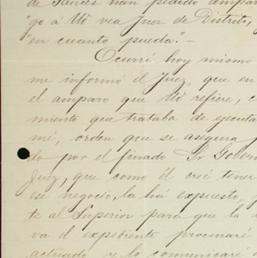 de Garcés han pedido ampar
"go á Ud vea Juez de Distrito,
"en cuanto pueda."-
Ocurrí hoy mismo
me informó el Juez, que en
el amparo que Ud refiere, c
miento que trataba de ejecuta
mi, orden que se asegura
do por el finado Sr Gober
Juez, que como él creé tener
ese negocio, la há expuesto,
te al Superior para que la
va el expediente procuraré
actuado se lo comunicaré